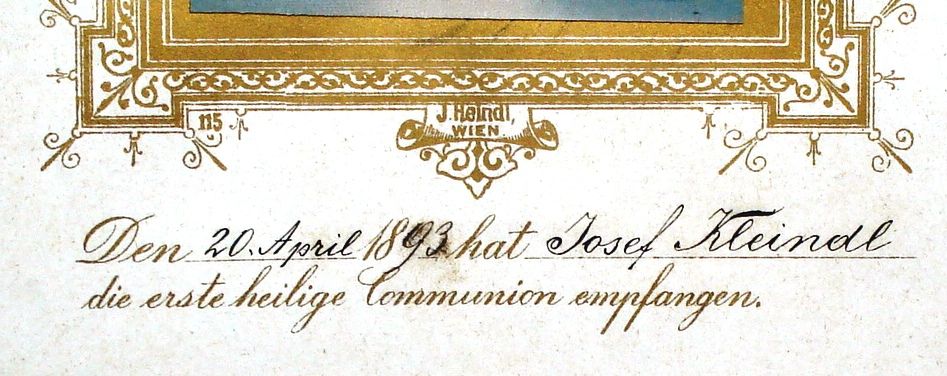 115
J. Heindl,
WIEN
Den 20. April 1893 hat Josef Kleindl
die erste heilige Communion empfangen.